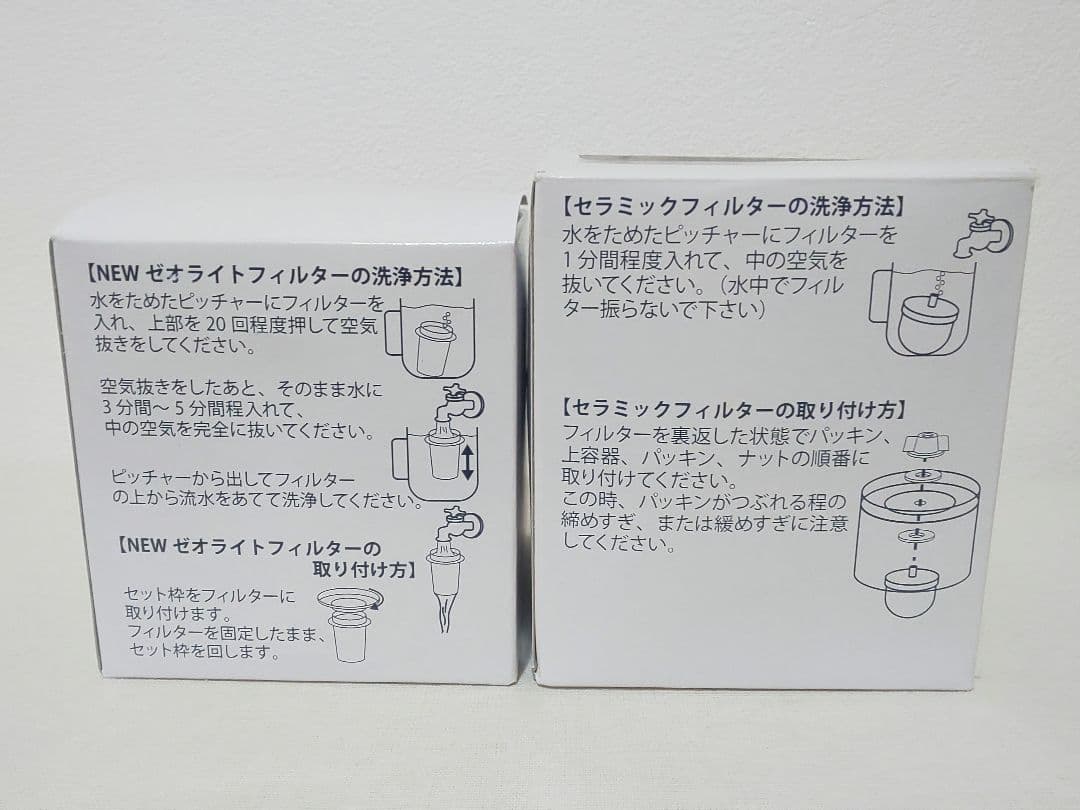 【NEW ゼオライトフィルターの洗浄方法】
水をためたピッチャーにフィルターを
入れ、上部を 20 回程度押して空気
抜きをしてください。
空気抜きをしたあと、そのまま水に
3 分間～ 5 分間程入れて、
中の空気を完全に抜いてください。
ピッチャーから出してフィルター
の上から流水をあてて洗浄してください。
【NEW ゼオライトフィルターの
取り付け方】
セット枠をフィルターに
取り付けます。
フィルターを固定したまま、
セット枠を回します。
【セラミックフィルターの洗浄方法】
水をためたピッチャーにフィルターを
1 分間程度入れて、中の空気を
抜いてください。（水中でフィル
ター振らないで下さい）
【セラミックフィルターの取り付け方】
フィルターを裏返した状態でパッキン、
上容器、パッキン、ナットの順番に
取り付けてください。
この時、パッキンがつぶれる程の
締めすぎ、または緩めすぎに注意
してください。